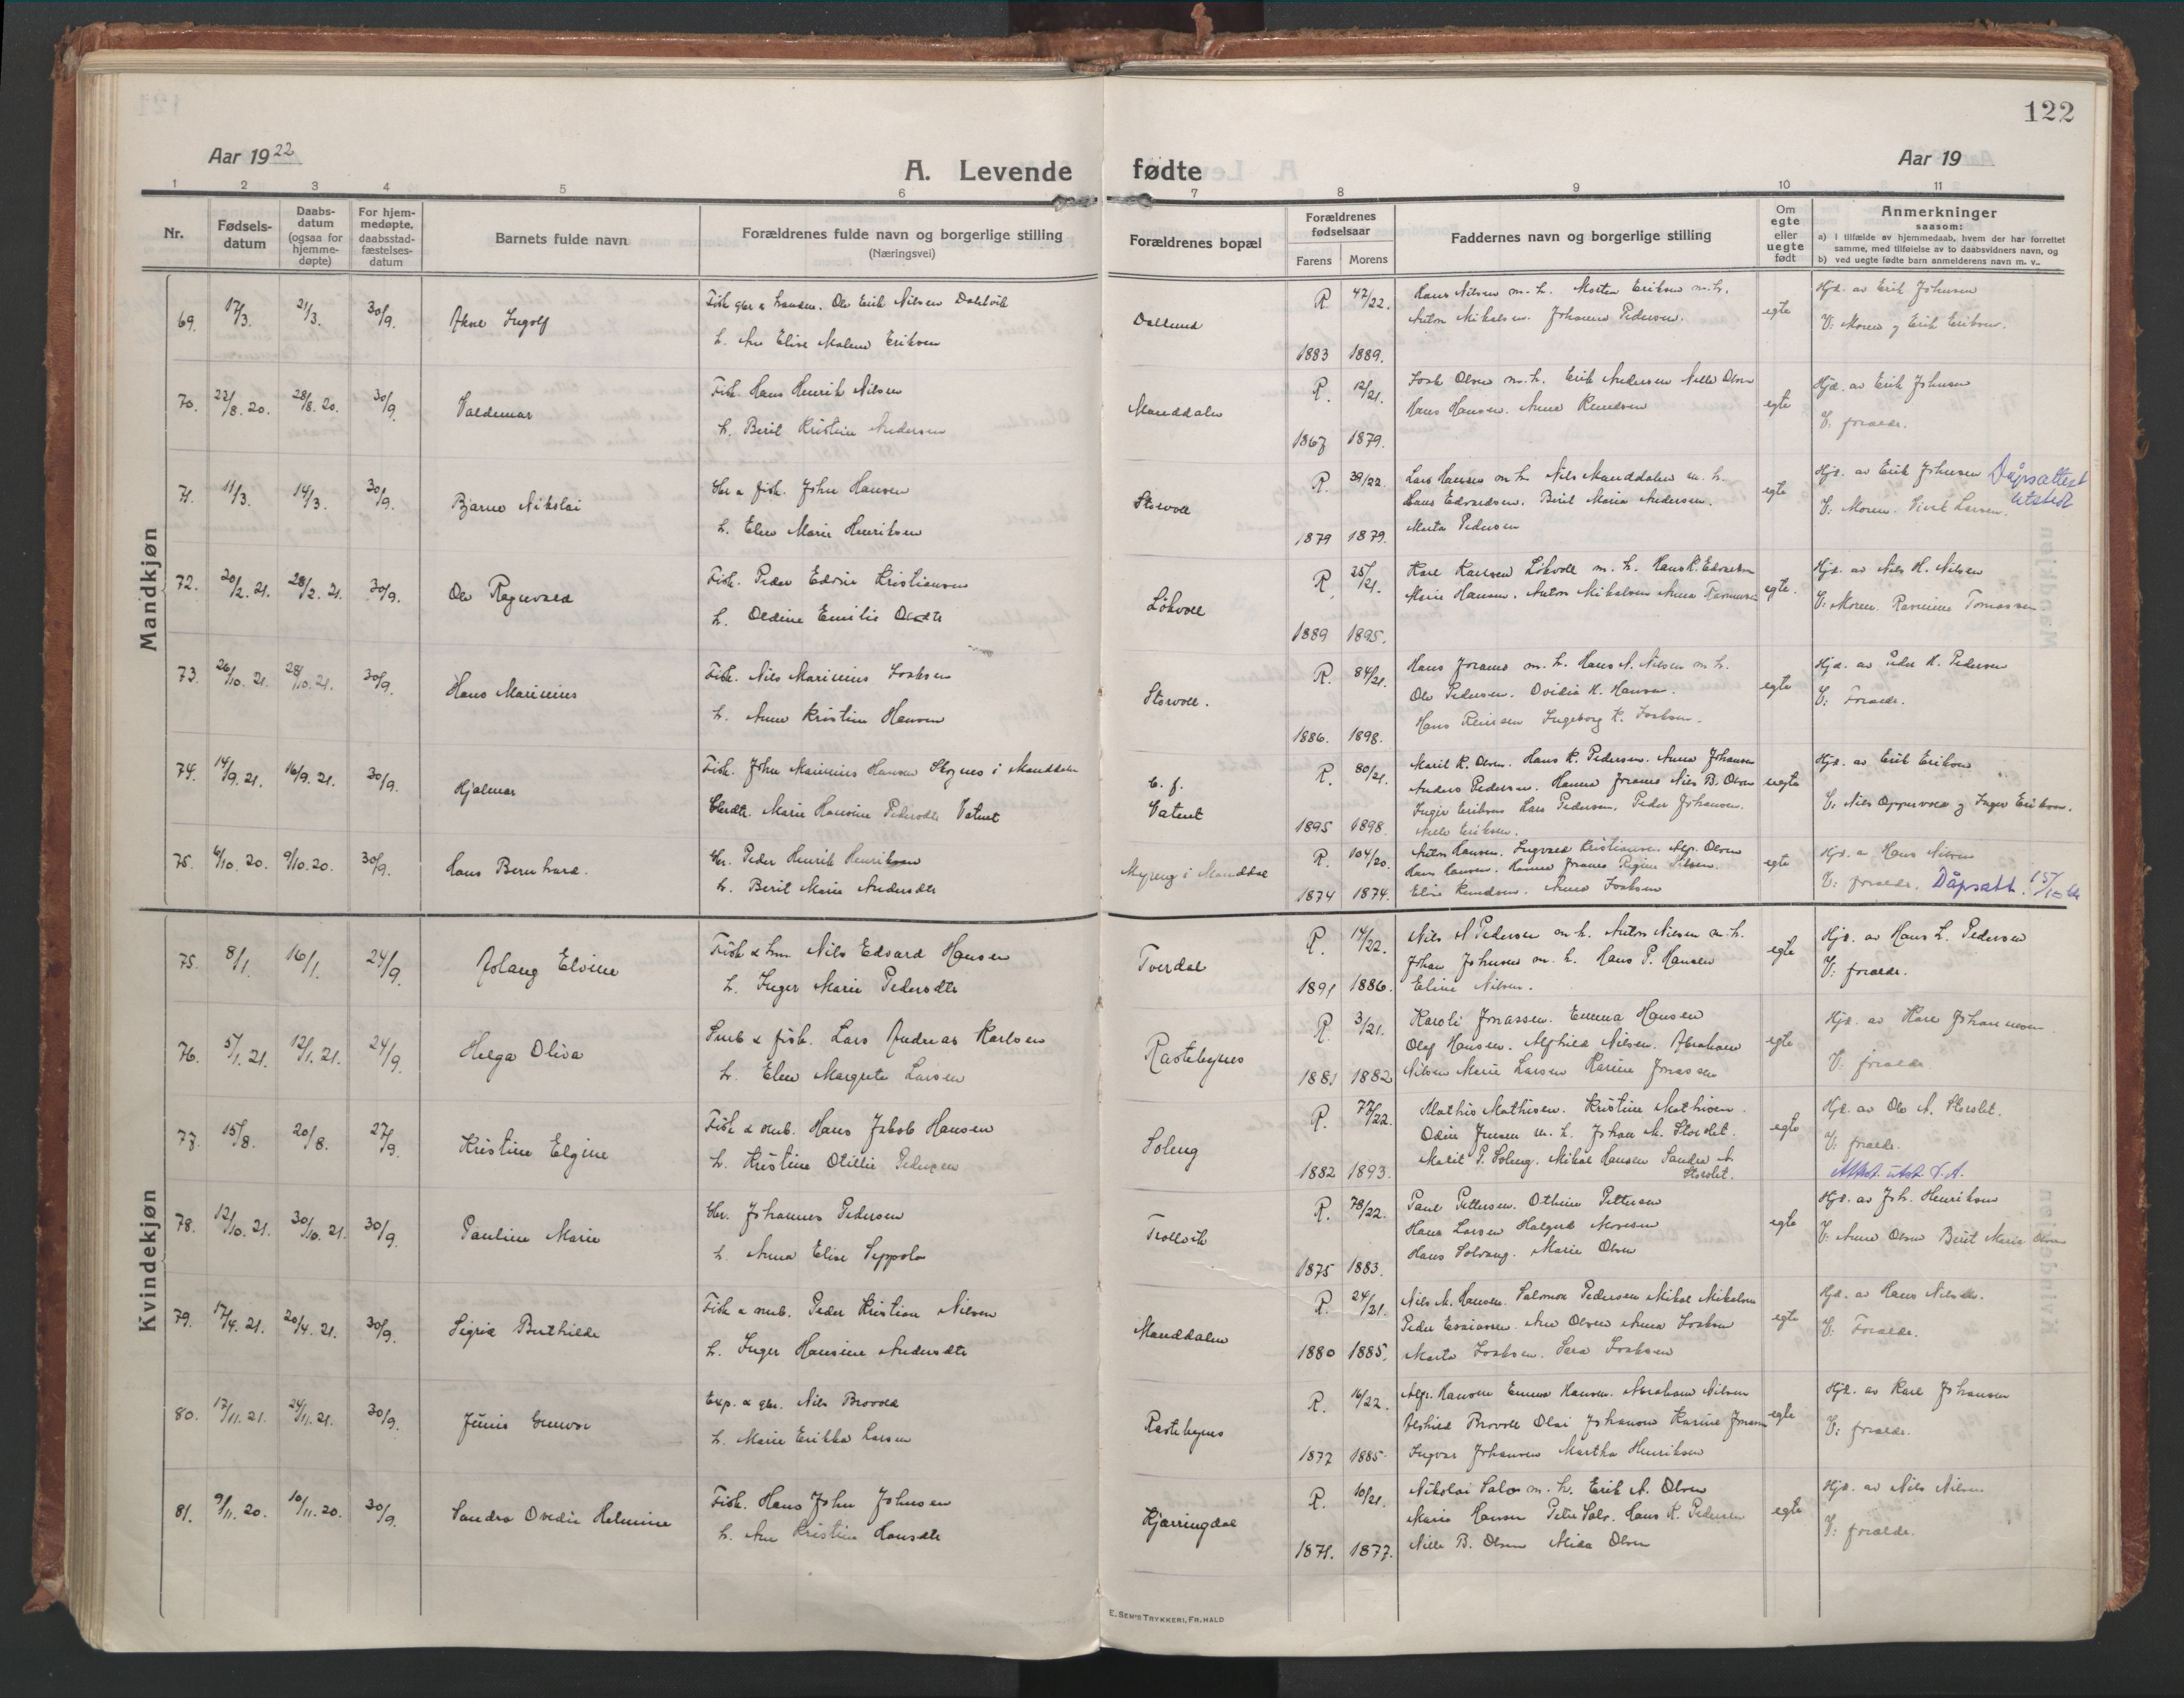 122
Aar 1922
A. Levende fødte
Aar 19
1 2 3 4 5 6 7 8 9 10 11
Nr.
Fødsels-
datum
Daabs-
datum
(ogsaa for
hjemme-
døpte)
For hjem-
medøpte,
daabsstad-
fæstelses-
datum
Barnets fulde navn
Forældrenes fulde navn og borgerlige stilling
(Næringsvei)
Forældrenes bopæl
Forældrenes
fødselsaar
Farens Morens
Faddernes navn og borgerlige stilling
Om
egte
eller
uegte
født
Anmerkninger
saasom:
a) i tilfælde av hjemmedaab, hvem der har forrettet
samme, med tilføielse av to daabsvidners navn, og
b) ved uegte fødte barn anmelderens navn m. v..
Mandkjøn
69. 17/3. 21/3. 30/9. Ingolf
Ole Erik Nilsen Dalvik
h. Ane Elise Malene Eriksen
R. 47/22.
1883 1889.
Hans Nilsen m. h. Morten Eriksen m. h.
Anton Mikalsen. Johanna Pedersen.
egte
Hjd. av Erik Johnsen
V: Moren og Erik Eriksen.
70. 22/8. 20. 28/8. 20. 30/9. Valdemar
Fisk. Hans Henrik Nilsen
h. Berit Kristine Andersen
Manddalen
R. 12/21.
1867 1879.
Olsen m. h. Erik Andersen Nille Olsen
Hans Hansen. Anna Knudsen
egte
Hjd. av Erik Johnsen
V. foraldr.
71. 11/3. 14/3. 30/9. Bjarne Nikolai
Gbr a fisk. John Hansen
h. Elen Marie Henriksen
Storvoll
R. 39/22.
1879 1879.
Lars Hansen m h Nils Manddalen m. h.
Hans Edvardsen. Berit Maria Andersen.
Marta Pedersen
egte
Hjd. av Erik Johnsen Dåpsattest
utstedt
V: Moren. Larsen.
72. 20/2. 21. 28/2. 21. 30/9. Ole Ragnvald
Fisk. Peder Edvin Kristiansen
h. Oldine Emilie
Løkvoll
R. 25/21.
1889 1895.
Karl Karlsen Løkvoll m. h. Hans K. Edvardsen
Marie Hansen. Anton Mikalsen Anna
egte.
Hjd. av Nils H. Nilsen
V: Moren. Rasmine Tomassen
73. 26/10. 21. 28/10. 21. 30/9. Hans Marinius
Fisk. Nils Marinius Isaksen
h. Anne Kristine Hansen
Storvoll.
R. 84/21.
1886. 1898.
Hans m. h. Hans A. Nilsen m h.
Ole Pedersen. Ovidia K. Hansen.
Hans Ingeborg K. Isaksen.
egte
Hjd. av Peder K. Pedersen
V: Foraldr.
74. 14/9. 21. 16/9. 21. 30/9. Hjalmar
Fisk. John Marinius Hansen Skognes i Manddalen
Marie Hansine Pedersdtr Vatnet
B. f.
Vatnet
R. 80/21.
1895 1898.
Marit K. Olsen. Hans K. Pedersen. Anna Johansen
Anders Pedersen. Hanna Nils B. Olsen
Inger Eriksen Lars Pedersen. Peder Johansen.
Nille Eriksen.
uegte
Hjd. av Erik Eriksen
V: Nils og Inger Eriksen.
75. 6/10. 20. 9/10. 20. 30/9. Hans Bernhard.
Gbr. Peder Henrik Henriksen
h. Berit Marie Andersdtr
Myreng i Manddal
R. 104/20.
1874 1874.
Anton Hansen. Ingvald Kristiansen. Alfr. Olsen
Hans Hansen. Hanna Regine
Elise Knudsen. Anna Isaksen
egte
Hjd. a Hans Nilsen
V: foraldr. Dåpsatt. 15/10
Kvindekjøn
75. 8/1. 16/1. 24/9. Aslaug Elvine
Nils Edvard Hansen
h. Inger Marie Pedersdtr
Tverdal
R. 14/22.
1891 1886.
Nils A Pedersen m h. Anton Nilsen m. h.
Johan Johnsen m. h. Hans P. Hansen
Eline Nilsen.
egte
Hjd. av Hans L. Pedersen
V: foraldr.
76. 5/1. 21. 12/1. 21. 24/9. Helga Oliva
Smb & fisk. Lars Andreas Karlsen
h. Elen Margrete Larsen
Rastebynes
R. 3/21.
1881 1882
Karoli Jonassen. Emma Hansen
Olaf Hansen. Alfhild Nilsen. Abraham
Nilsen Marie Larsen Karine Jonassen
egte
Hjd. av Karl Johannesen
V: foraldr.
77. 15/8. 20/8. 27/9. Kristine Elgine
Fisk & smb. Hans Jakob Hansen
h. Kristine Otillie Pedersen
Soleng
R. 77/22.
1882 1893.
Mathis Mathisen. Kristine Mathisen.
Odin Jensen m. h. Johan M. Storslet.
Marit P. Soleng. Mikal Hansen Sandra A.
Storslet.
egte
Hjd. av Ole A. Storslet.
V: foraldr.
Attest utst.
78. 12/10. 21. 30/10. 21. 30/9. Pauline Marie
Gbr. Johannes Pedersen
h. Anna Elise Seppola
Trollvik
R. 78/22.
1875 1883.
Paul Pettersen. Othine Pettersen
Hans Larsen
Hans Solvang. Marie Olsen
egte
Hjd. av Joh. Henriksen
V: Anne Olsen Berit Marie Olsen
79. 17/4. 21. 20/4. 21. 30/9. Sigrid Buthilde
Fisk a smb. Peder Kristian Nilsen
h. Inger Hansine Andersdtr
Manddalen
R. 24/21.
1880 1885.
Nils M. Hansen. Salomon Pedersen Mikal Mikalsen
Peder Esaiassen. Ane Olsen Anna Isaksen
Marta Isaksen. Sara Isaksen
egte
Hjd. av Hans Nilsen.
V: Foraldr.
80. 17/11. 21. 24/11. 21. 30/9. Junie Gunvor
Exp. & gbr. Nils Brovold
h. Marie Erikka Larsen
Rastebynes
R. 16/22.
1877 1885
Alfr. Hansen Emma Hansen. Abraham Nilsen
Alfhild Brovoll Olai Johansen Karine Jonassen
Ingvar Johansen Martha Henriksen
egte
Hjd. av Karl Johansen
V: foraldr.
81. 9/11. 20. 10/11. 20. 30/9. Sandra Ovedie Helmine
Fisk. Hans John Johnsen
h. Ane Kristine Hansdtr
Kjærringdal
R. 10/21.
1871. 1877.
Nikolai Salo m. h. Erik A. Olsen
Marie Hansen Petra Salo. Hans K. Pedersen
Nille B. Olsen Olsen
egte
Hjd. av Nils Nilsen
V: foraldr.
E. SEM'S TRYKKERI, FR. HALD